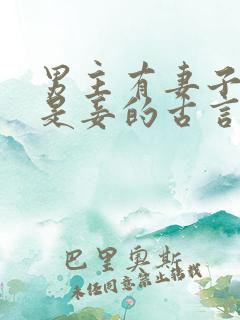 男主有妻子
是妾的古言
巴里奥斯
未经同意禁止转载